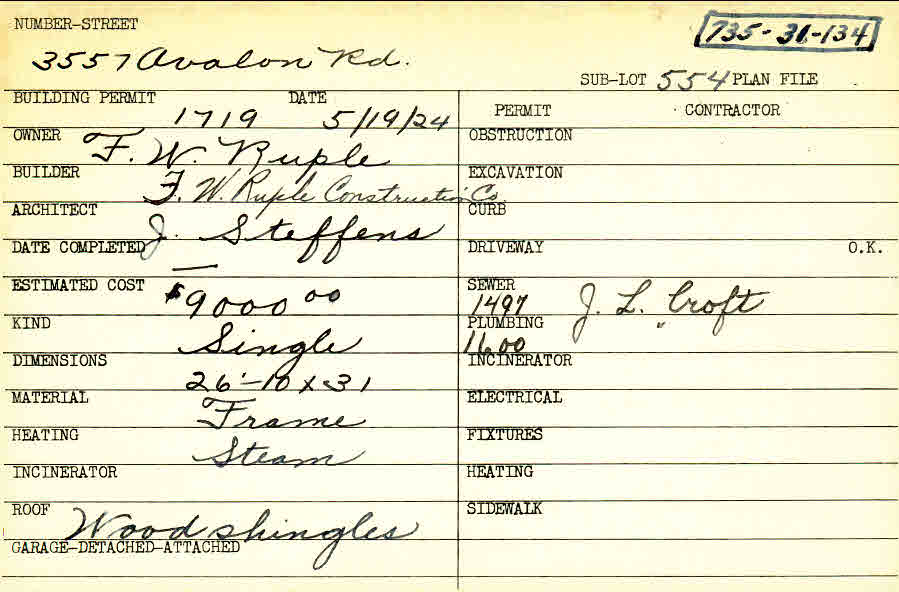 NUMBER-STREET
735-31-134
3557 Avalon Rd.
SUB-LOT 554 PLAN FILE
BUILDING PERMIT DATE
1719 5/19/24
PERMIT CONTRACTOR
OWNER F. W. Ruple
OBSTRUCTION
BUILDER F. W. Ruple Construction Co.
EXCAVATION
ARCHITECT J. Steffens
CURB
DATE COMPLETED —
DRIVEWAY O.K.
ESTIMATED COST $9000 00
SEWER
1497 J. L. Croft
KIND Single
PLUMBING "
1600
DIMENSIONS 26'-10 x 31
INCINERATOR
MATERIAL Frame
ELECTRICAL
HEATING Steam
FIXTURES
INCINERATOR
HEATING
ROOF Wood shingles
SIDEWALK
GARAGE-DETACHED-ATTACHED